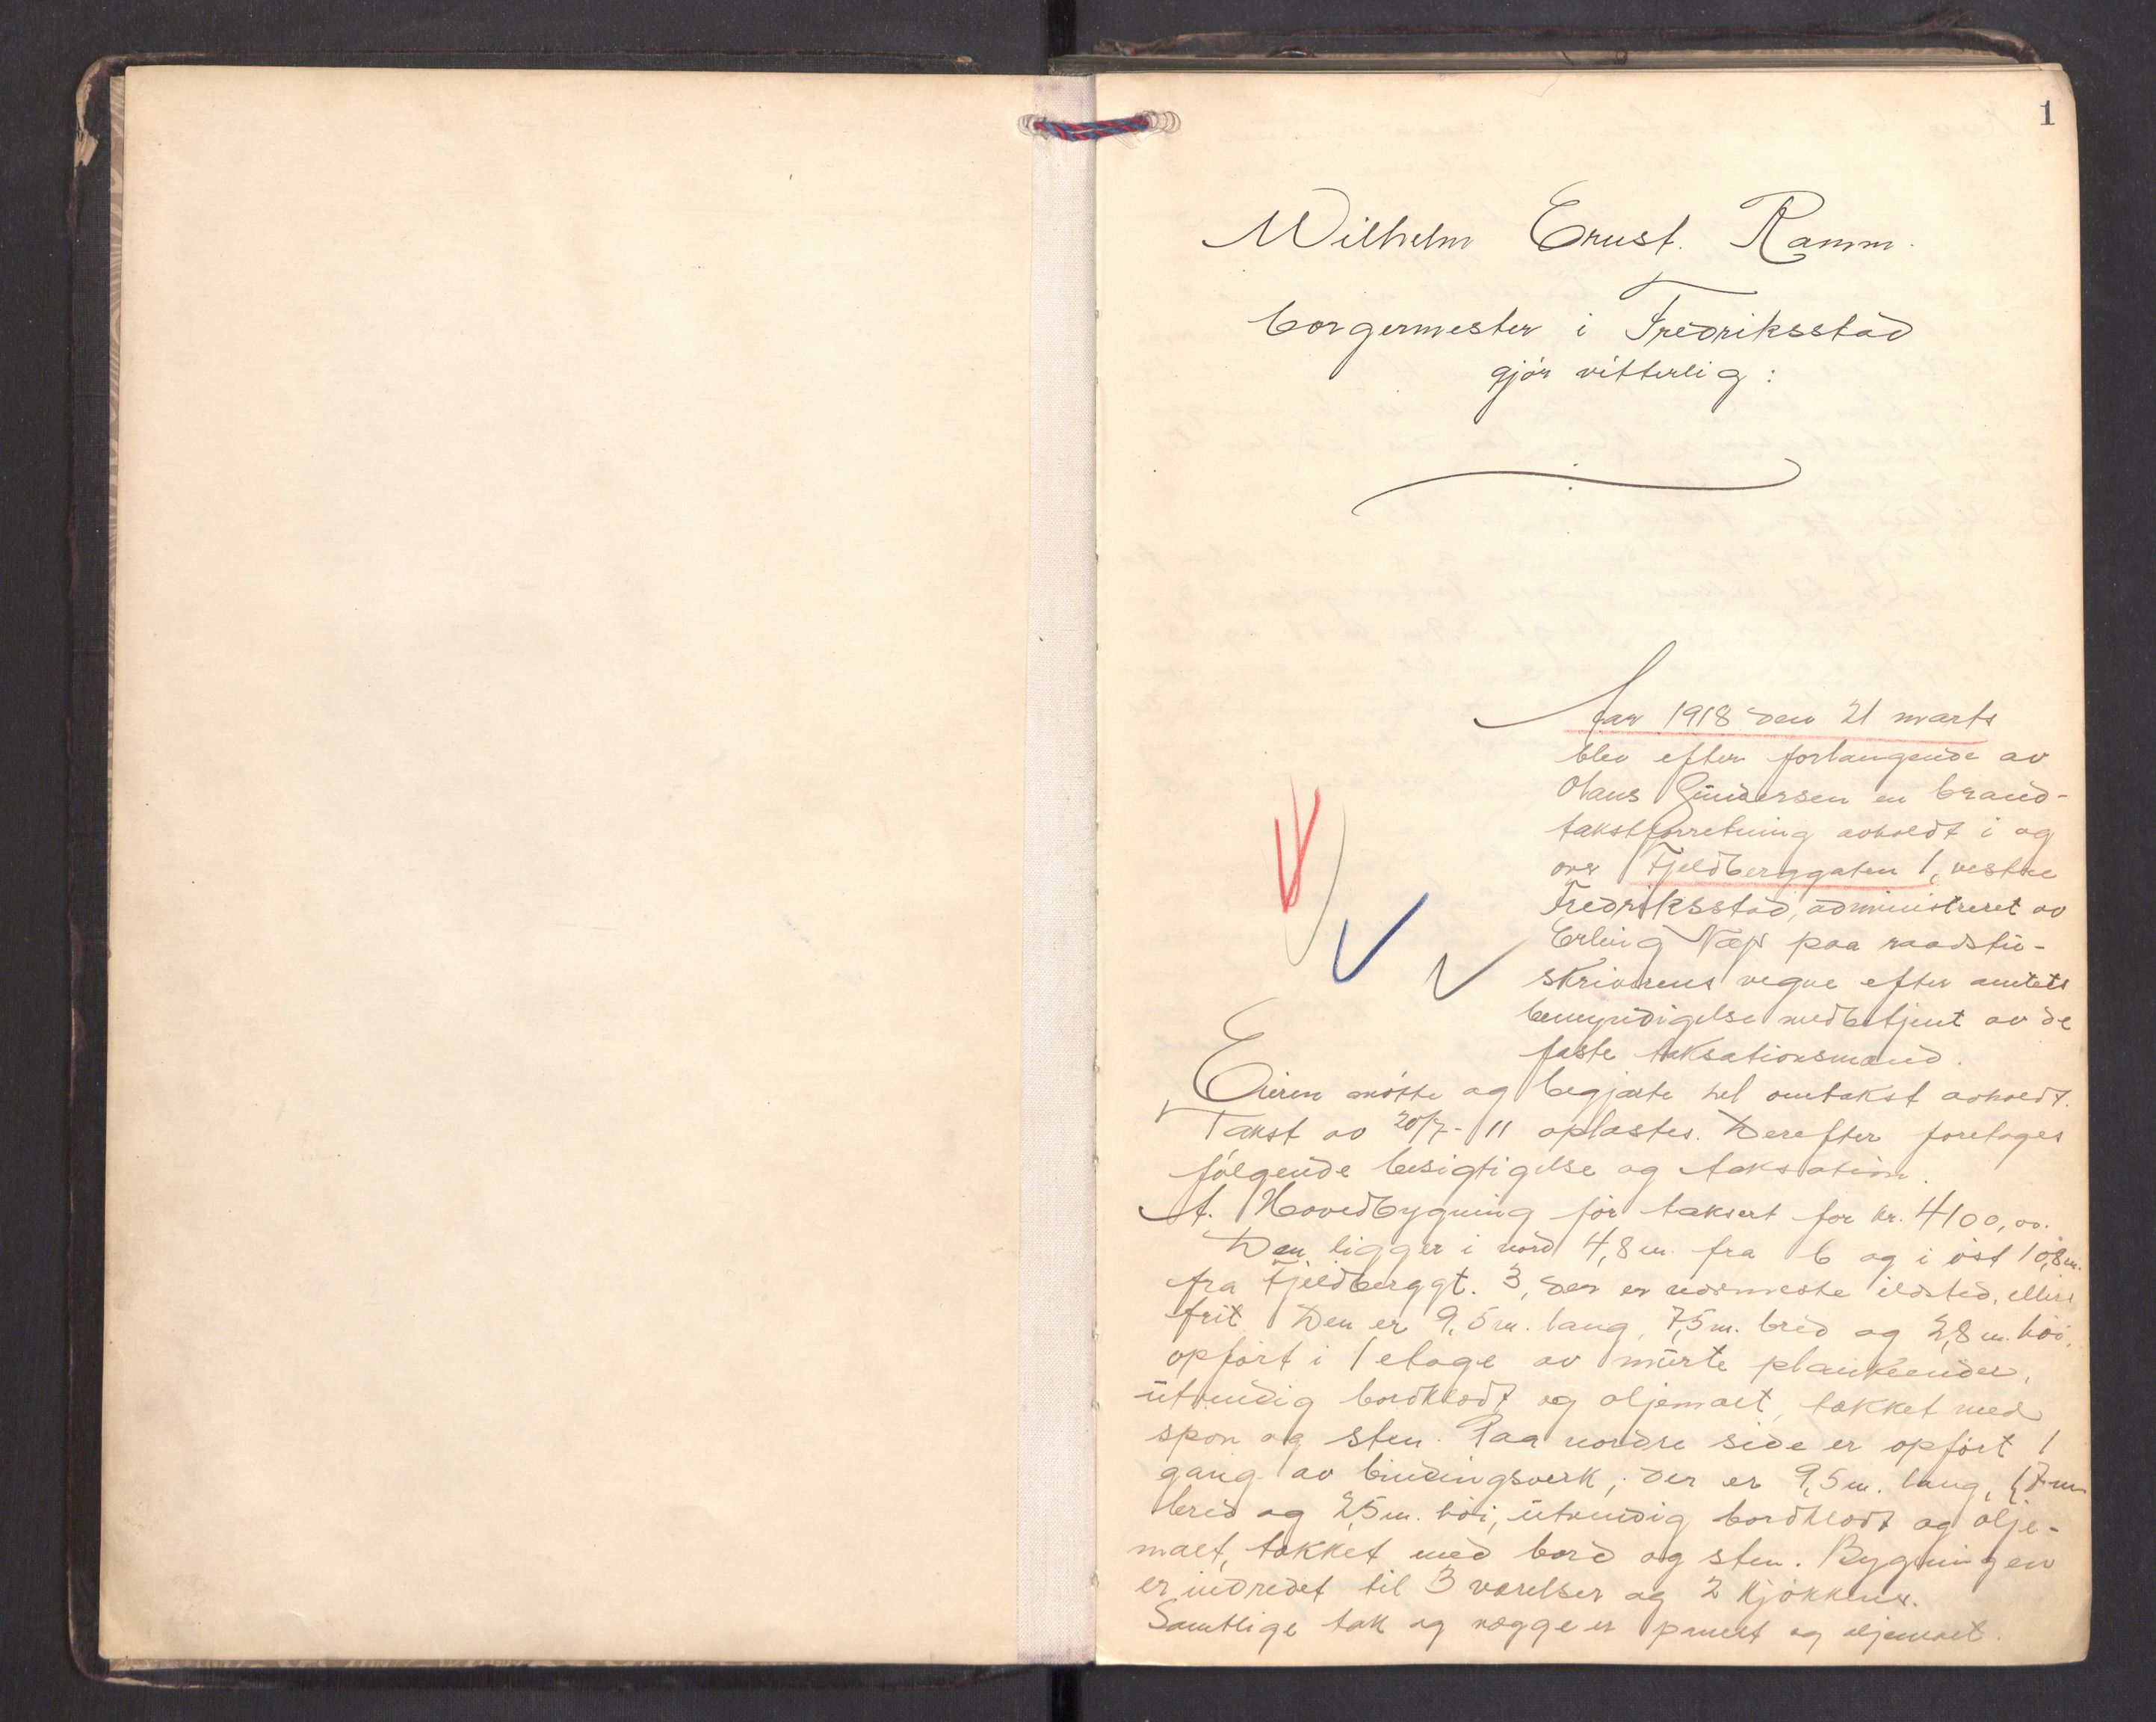 1
Wilhelm Ernst. Ramm.
borgermester i Fredriksstad
gjør vitterlig:
Aar 1918 den 21 marts
blev efter forlangende av
Olaus Gundersen en brand-
takstforretning avholdt i og
over Fjeldberggaten 1, vestre
Fredriksstad, administreret av
Erling Næs paa raadstu-
skriverens vegne efter amtets
bemyndigelse medbetjent av de
faste taksationsmænd.
Eieren møtte og begjærte hel omtakst avholdt.
Takst av 20/7-11 oplæstes. Derefter foretoges
følgende besigtigelse og taksation.
A. Hovedbygning før taksert for kr. 4100,00.
Den ligger i nord 4,8 m. fra b og i øst 10,8 m.
fra Fjeldberggt. 3, der er nærmeste ildsted, ellers
frit Den er 9,5 m. lang, 7,5 m. bred og 2,8 m. høi,
opført i 1 etage av murte plankeender,
utvendig bordklædt og oljemalt, tækket med
spon og sten. Paa nordre side er opført 1
gang av bindingsverk; der er 9,5 m. lang, 1,7 m
bred og 2,5 m. høi, utvendig bordklædt og olje-
malt, tækket med bord og sten. Bygningen
er indredet til 3 værelser og 2 kjøkkener.
Samtlige tak og vægge er panelt og oljemalt.